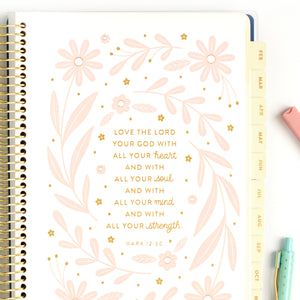 LOVE THE LORD
YOUR GOD WITH
ALL YOUR heart
AND WITH
ALL YOUR soul
AND WITH
ALL YOUR mind
AND WITH
ALL YOUR strength
MARK 12:30
FEB
MAR
APR
MAY
JUN
JUL
AUG
SEP
OCT